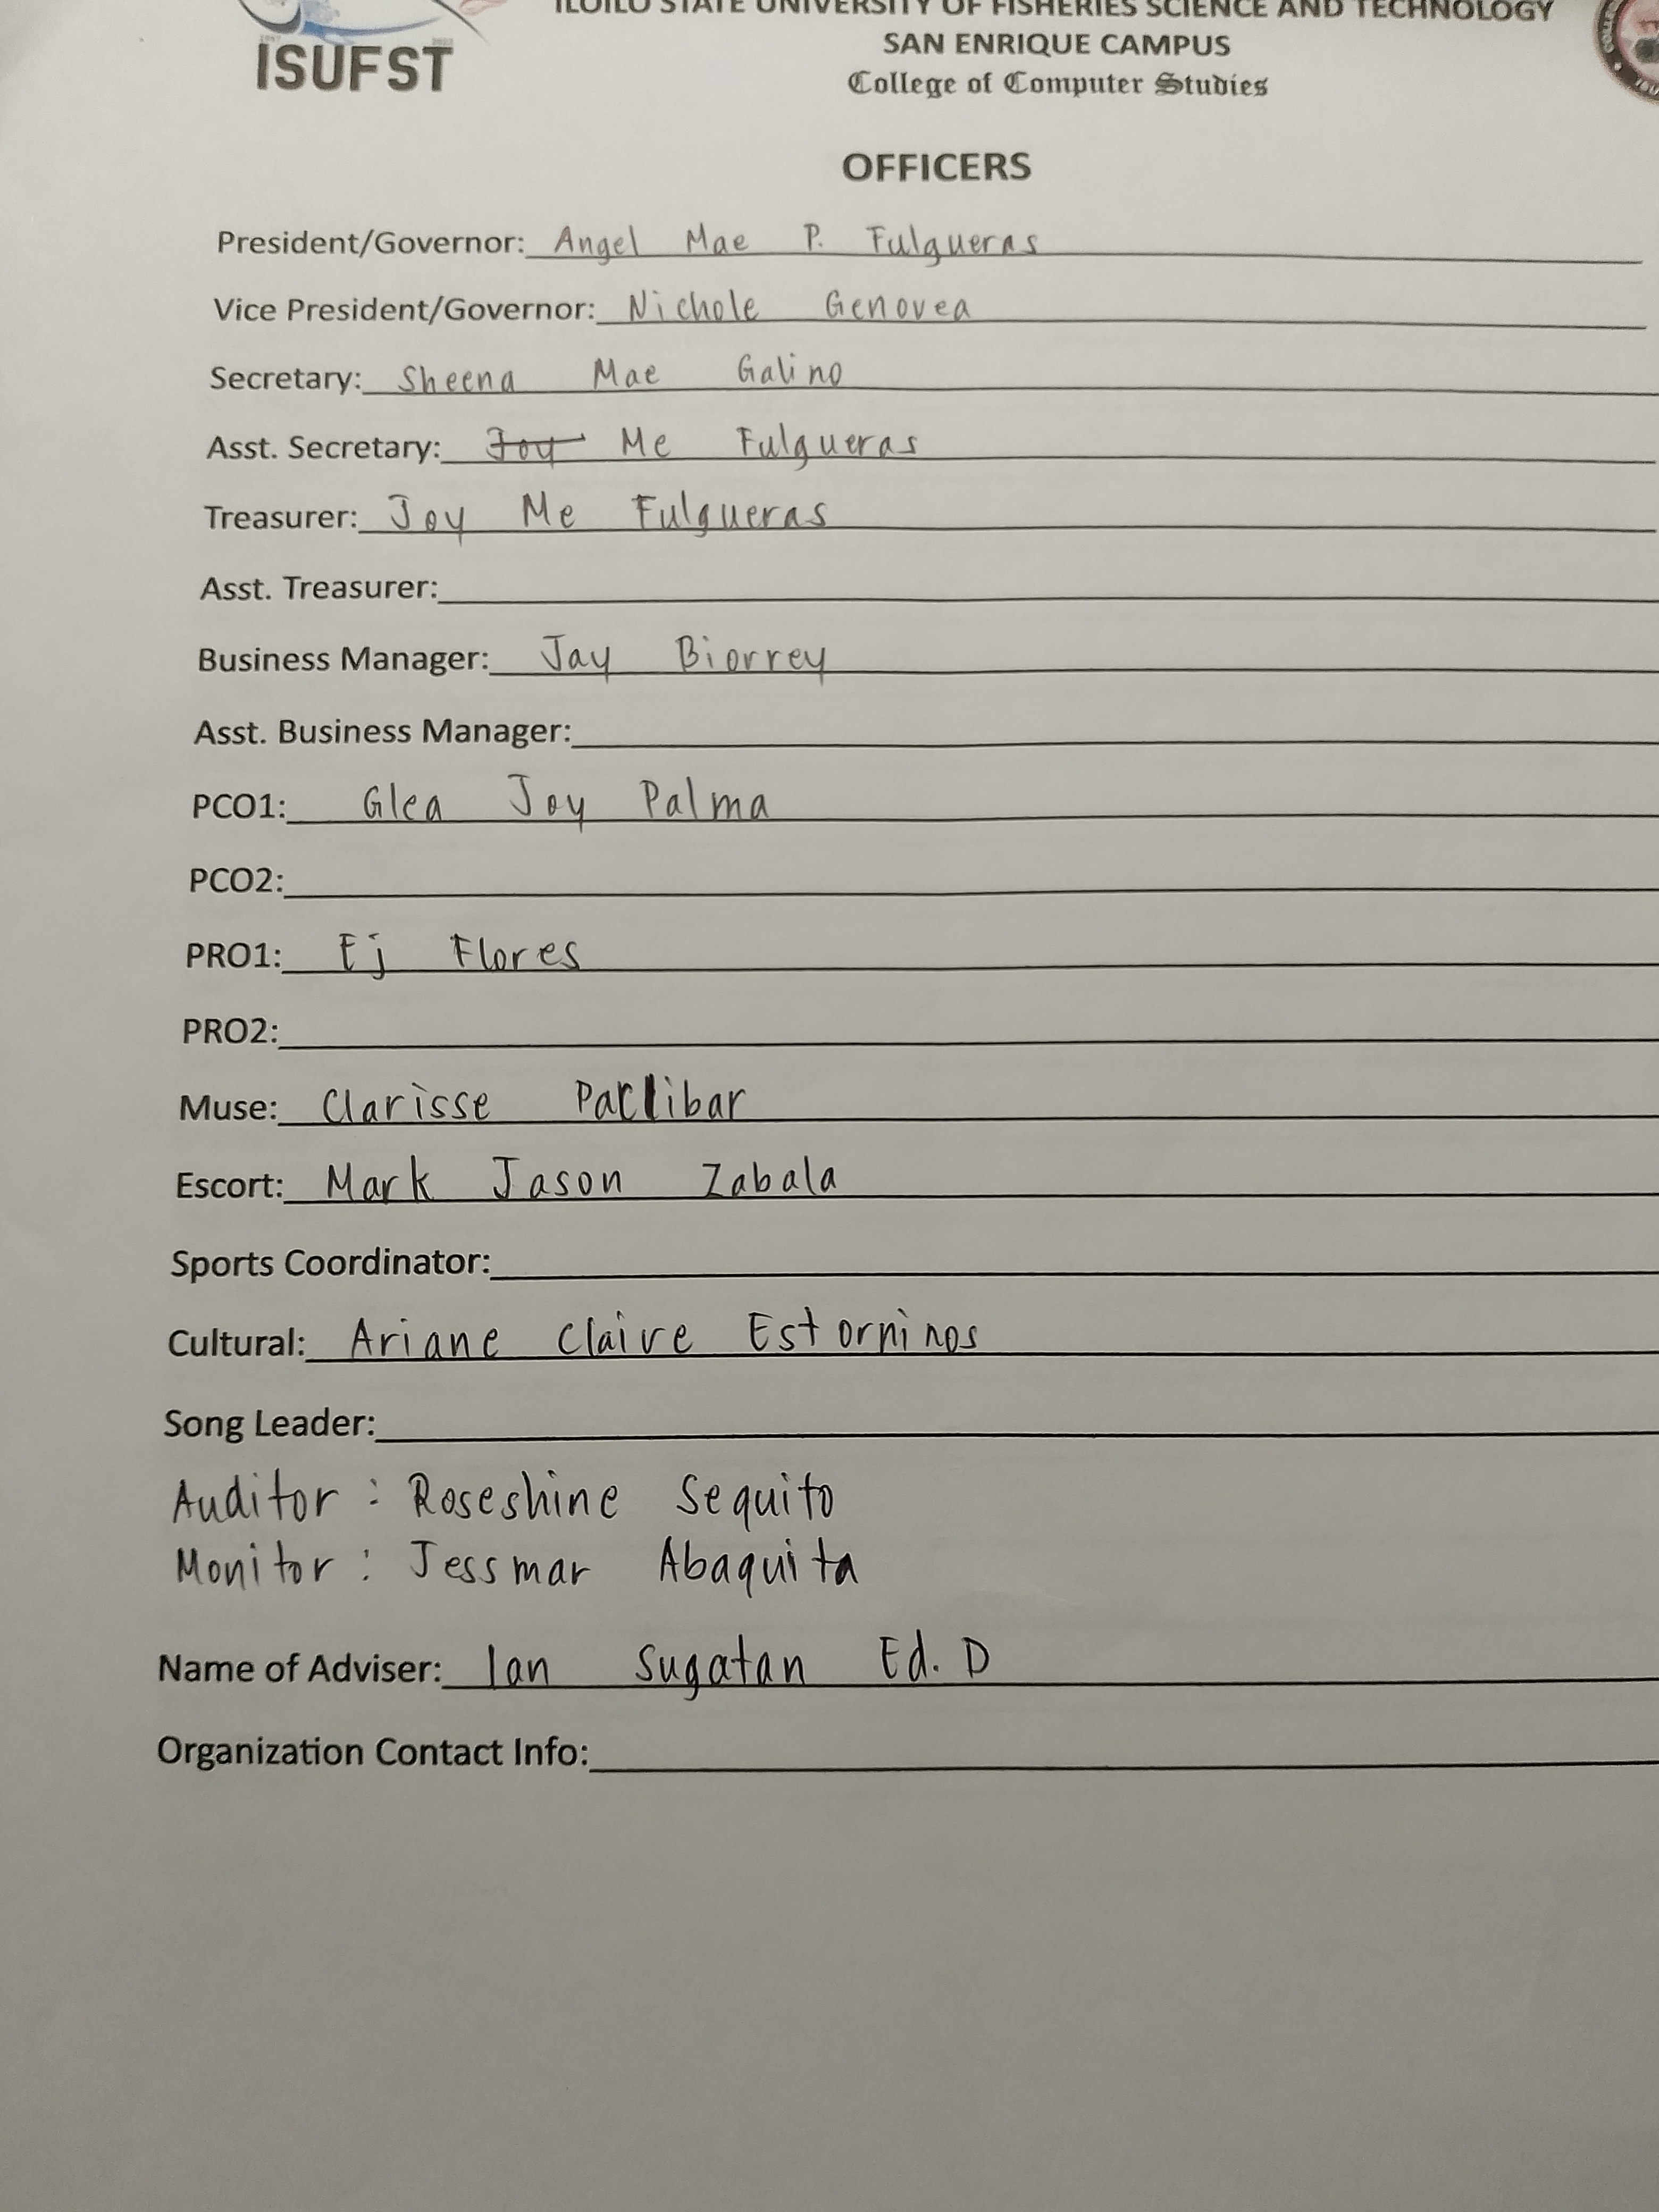 ILOILO STATE UNIVERSITY OF FISHERIES SCIENCE AND TECHNOLOGY
ISUFST
SAN ENRIQUE CAMPUS
College of Computer Studies
OFFICERS
President/Governor: Angel Mae P. Fulgueras
Vice President/Governor: Nichole Genovea
Secretary: Sheena Mae Galino
Asst. Secretary: Joy Me Fulgueras
Treasurer: Joy Me Fulgueras
Asst. Treasurer:
Business Manager: Jay Biorrey
Asst. Business Manager:
PCO1: Glea Joy Palma
PCO2:
PRO1: Ej Flores
PRO2:
Muse: Clarisse Paclibar
Escort: Mark Jason Zabala
Sports Coordinator:
Cultural: Ariane Claire Estorninos
Song Leader:
Auditor : Roseshine Sequito
Monitor : Jessmar Abaquita
Name of Adviser: Ian Sugatan Ed. D
Organization Contact Info: